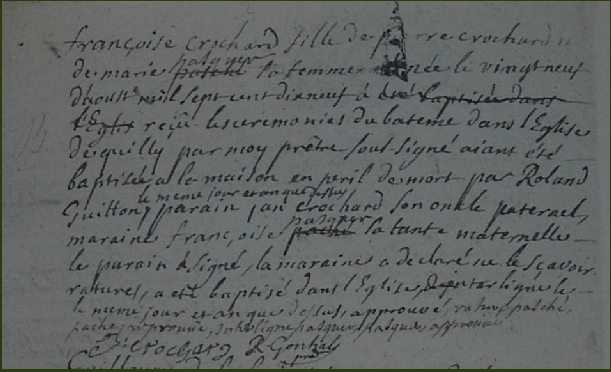 françoise crochard fille de pierre crochard
pasquer
de marie pasché sa femme née le vingt neuf
daoust mil sept cent dix neuf a été baptisée dans
l'Eglise reçu les ceremonies du bateme dans l'Eglise
de quilly par moy prêtre sous signé aiant été
baptisée a la maison en peril de mort par Roland
le meme jour et an que dessus
Guitton, parain jan crochard son oncle paternel,
pasquer
maraine françoise paché sa tante maternelle
le parain a signé, la maraine a declaré ne le scavoir
ratures, a eté baptisé dans l'Eglise, interligne le
le meme jour et an que dessus, approuvé, rature pasché,
paché, reprouvée, interligne pasquer, pasquer, approuvé
J: crochard R Gontral
ptre